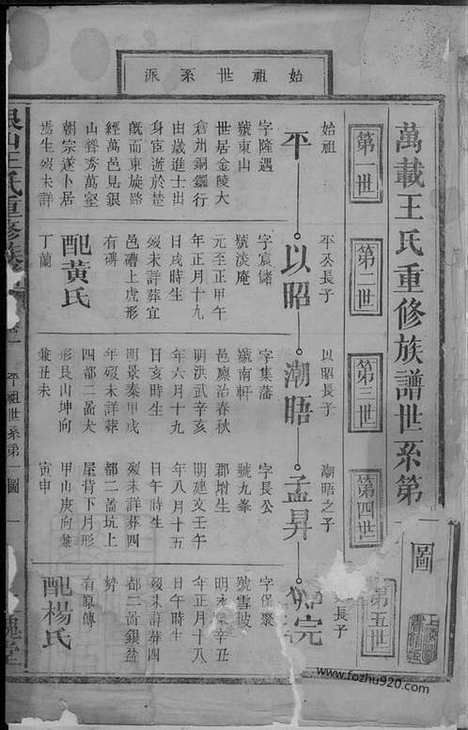 始祖世系派
萬載王氏重修族譜世系第
一圖
第一世
第二世
第三世
第四世
第五世
始祖
平
字隆遇
號東山
世居金陵大
倉州銅鑼行
由歲進士出
身宦遊於楚
既而東旋路
經萬邑見銀
山聳秀萬壑
朝宗遂卜居
焉生歿未詳
平公長子
以昭
字宸儲
號淡庵
元至正甲午
年正月十九
日戌時生
歿未詳葬宜
邑礱上虎形
有碑
配黃氏
丁蘭
以昭長子
潮晤
字集藩
號南軒
邑廩治春秋
明洪武辛亥
年六月十九
日亥時生
明景泰甲戌
年歿未詳葬
四都二啚夫
形艮山坤向
兼丑未
潮晤之子
孟昇
字長公
號九峯
郡增生
明建文壬午
年八月十五
日午時生
歿未詳葬四
都二啚坑上
屋背下月形
甲山庚向兼
寅申
長子
完
字保聚
號雪波
明永辛丑
年正月十八
日午時生
歿未詳葬四
都二啚銀盆
勢
有懿傳
配楊氏
銀山王氏重修族
平祖世系第一圖
一
槐堂
www.fozhu920.com